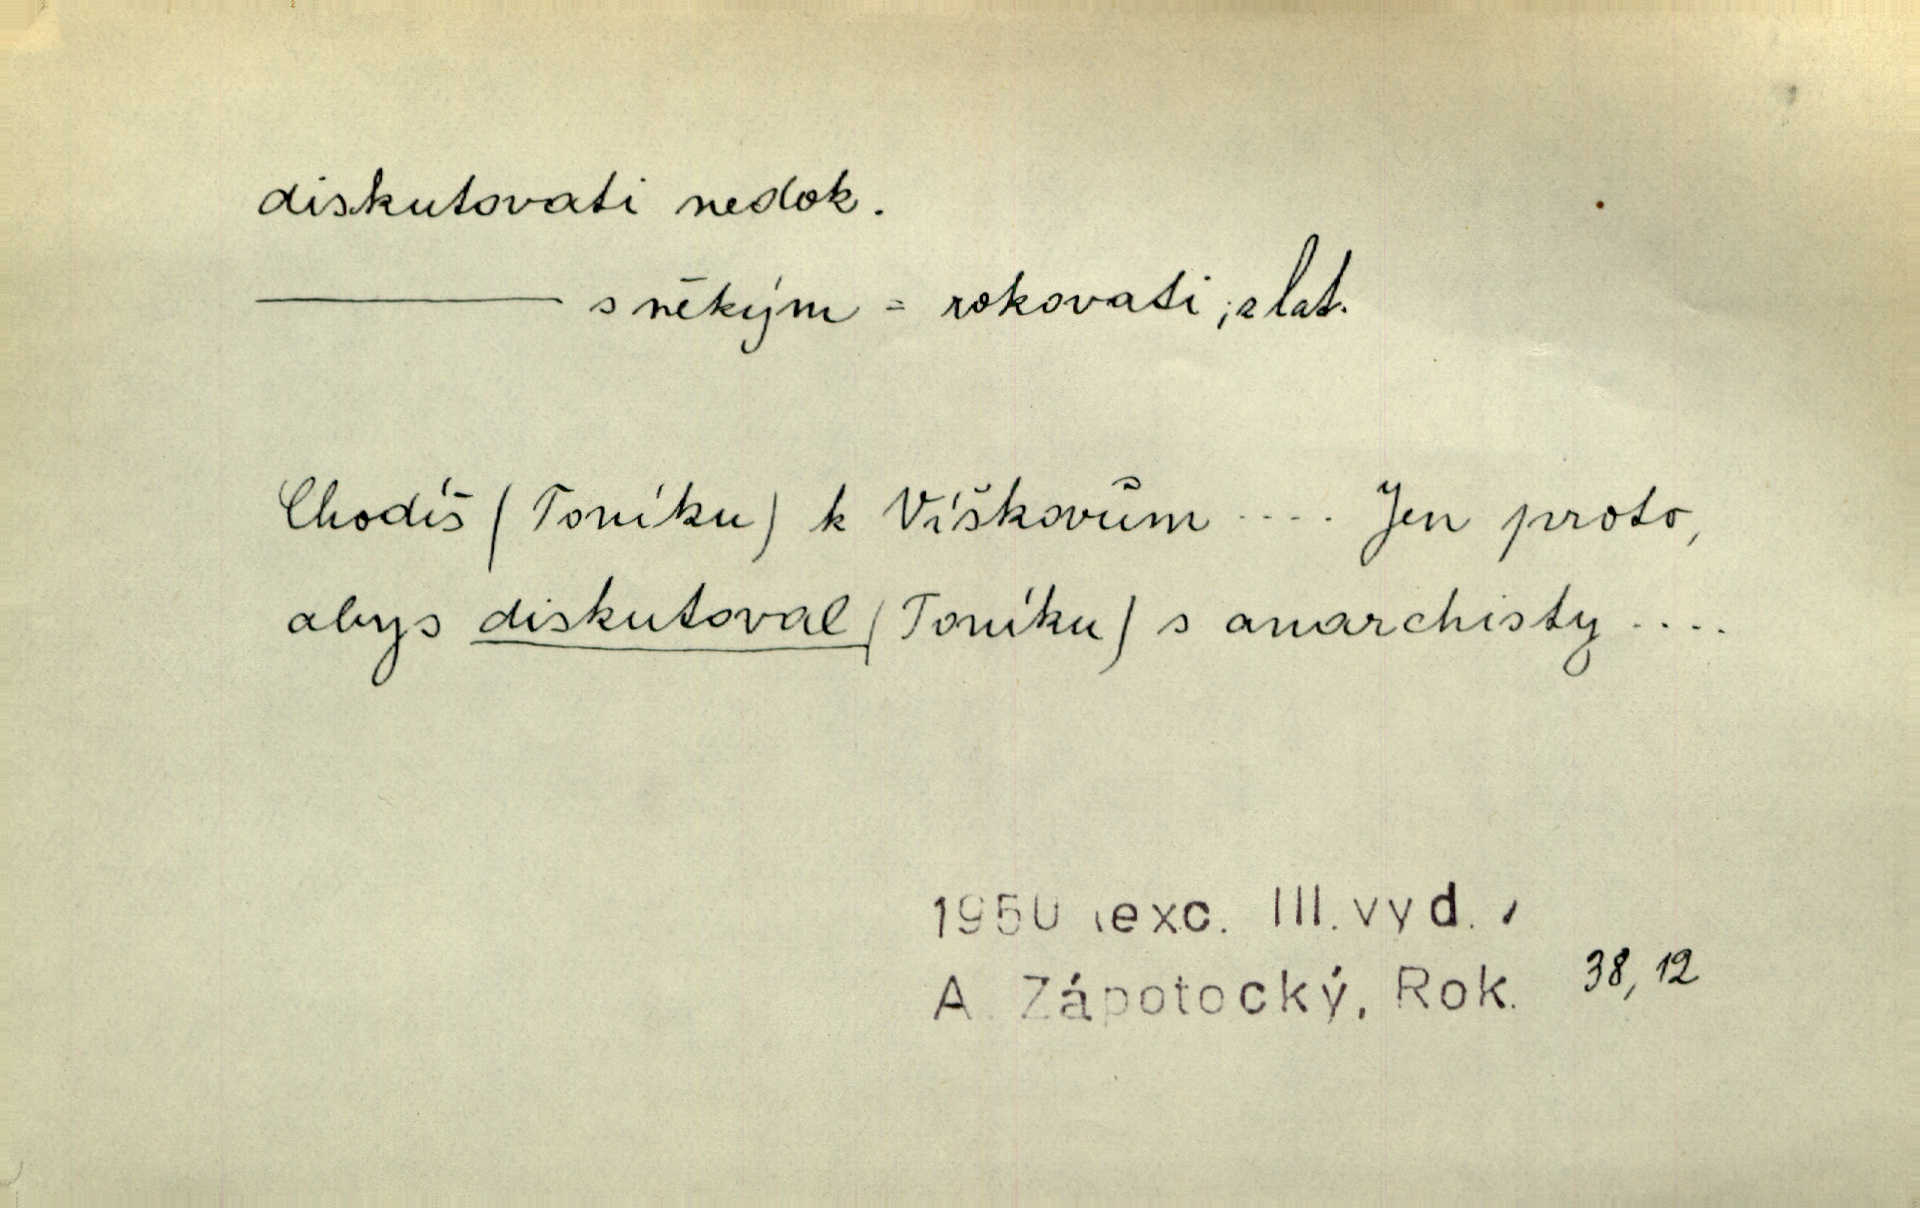 diskutovati nedok.
——— s někým = rokovati; z lat.
Chodíš (Toníku) k Víškovům .... Jen proto,
abys diskutoval (Toníku) s anarchisty ....
1950 (exc. III. vyd.)
A. Zápotocký, Rok. 38,12